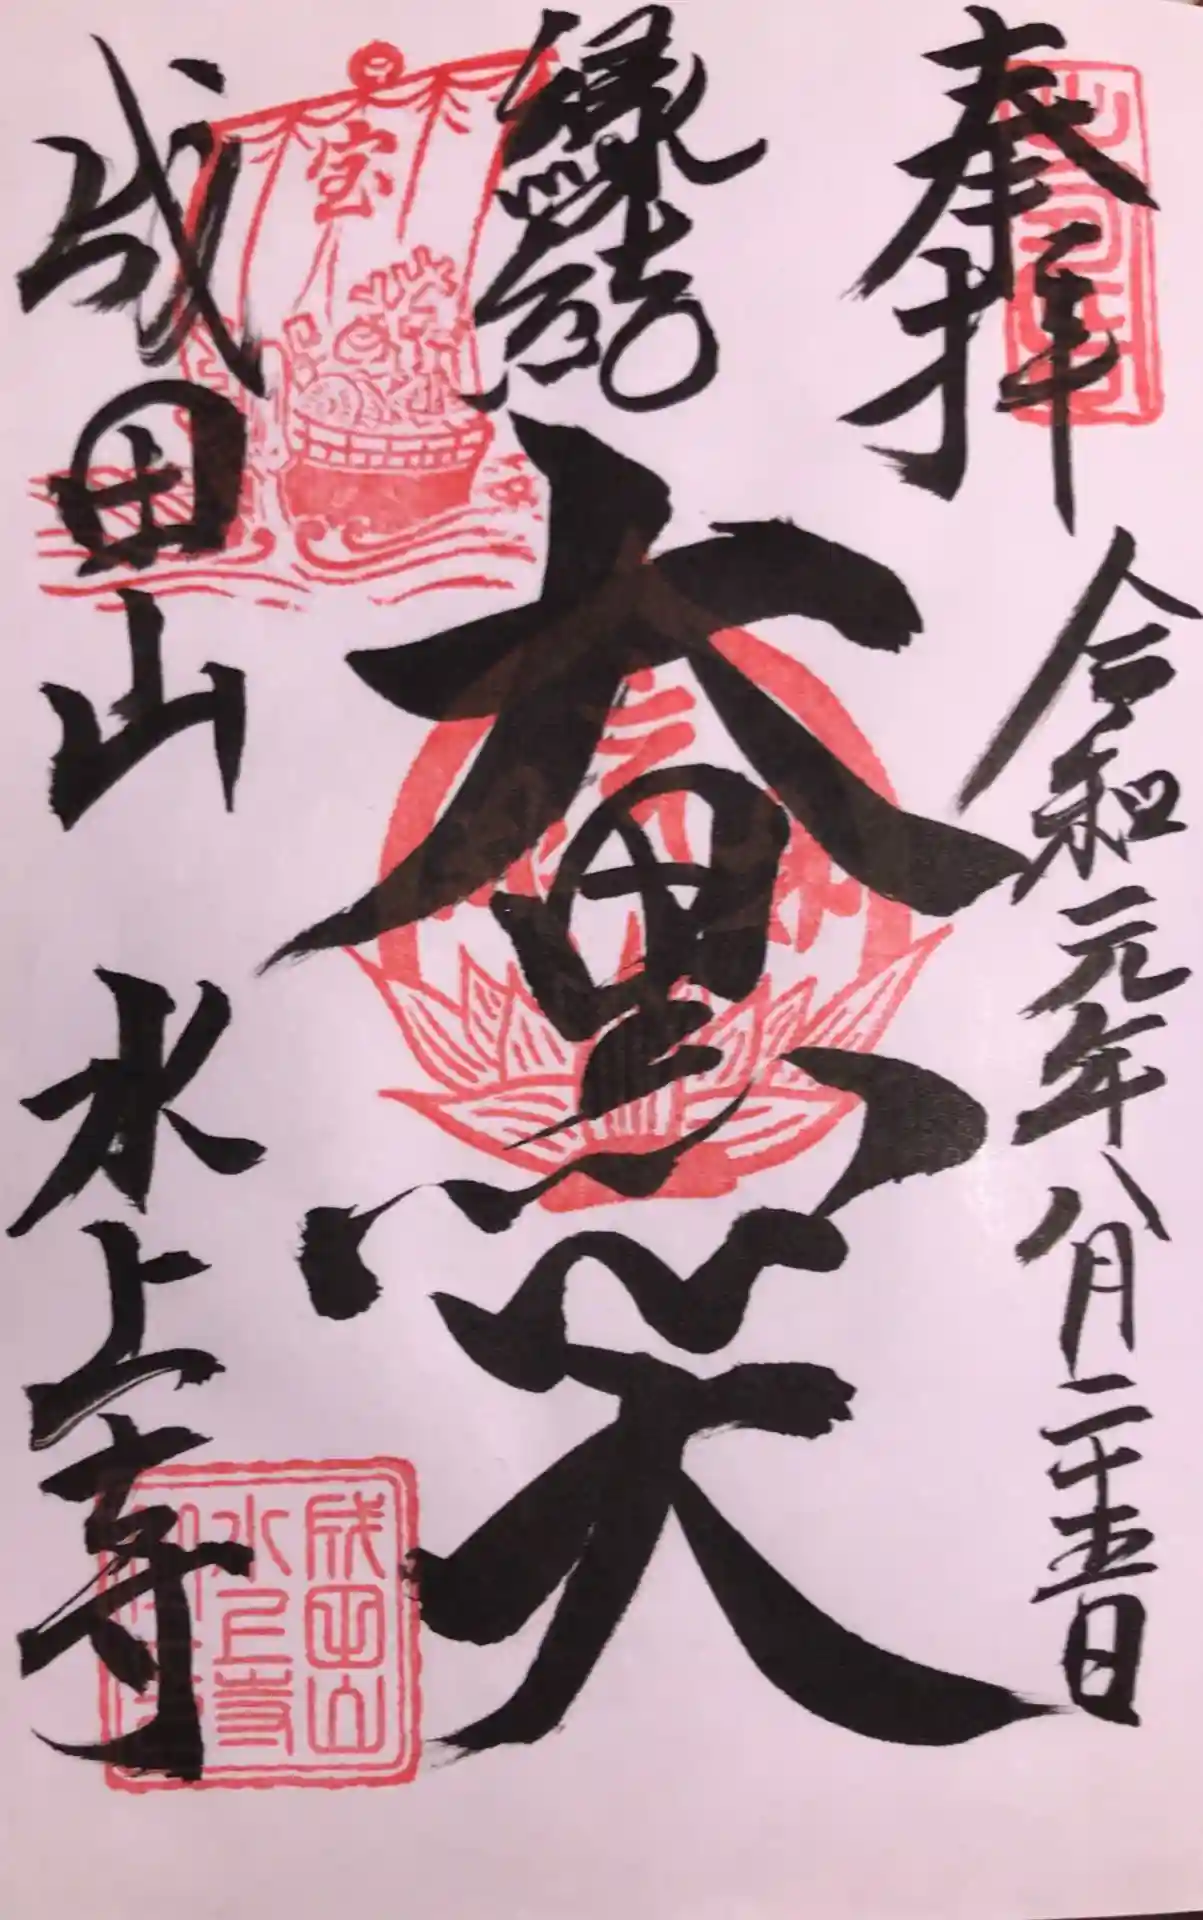 奉拝
令和元年八月二十五日
縁結
大黒天
宝
成田山 水上寺
成田山
水上寺